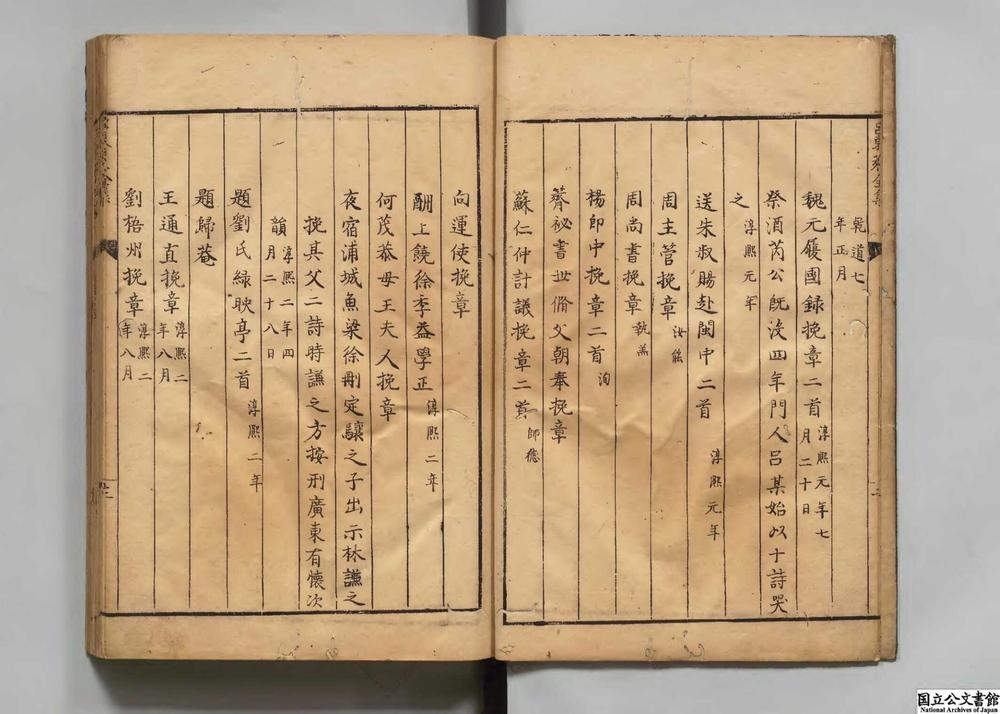 乾道七
年正月
魏元履國録挽章二首 淳熙元年七月二十日
祭酒芮公旣沒四年門人呂某始以十詩哭
之 淳熙元年
送朱叔賜赴閩中二首 淳熙元年
周主管挽章 汝能
周尚書挽章 執羔
楊郎中挽章二首 洵
薺祕書世脩父朝奉挽章
蘇仁仲計議挽章二首 師德
向運使挽章
酬上饒徐季益學正 淳熙二年
何茂恭母王夫人挽章
夜宿浦城魚梁徐刪定驤之子出示林謙之
挽其父二詩時謙之方按刑廣東有懷次
韻 淳熙二年四月二十八日
題劉氏緑映亭二首 淳熙二年
題歸菴
王通直挽章 淳熙二年八月
劉梧州挽章 淳熙二年八月
国立公文書館
National Archives of Japan